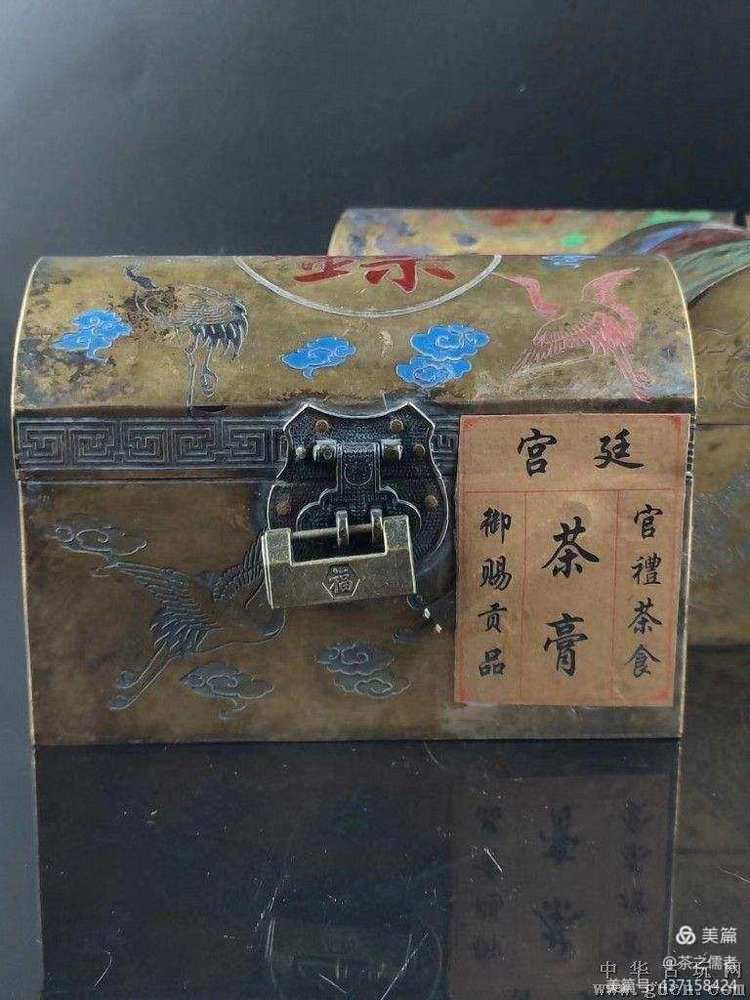 宫廷
官禮茶食
茶膏
御赐贡品
福
美篇
@茶之儒者
中华古玩网
美篇号:437158424
www.gucn.com